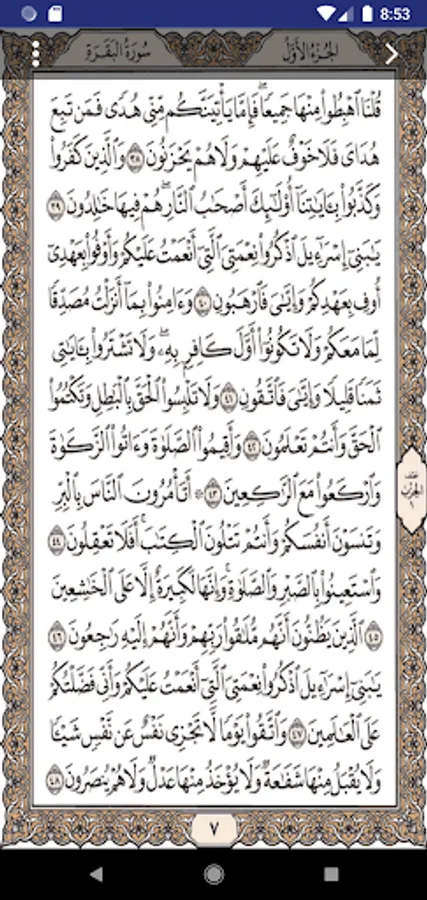 8:53
الجزء الأول
سورة البقرة
قُلْنَا ٱهْبِطُوا۟ مِنْهَا جَمِيعًا ۖ فَإِمَّا يَأْتِيَنَّكُم مِّنِّى هُدًى فَمَن تَبِعَ
هُدَاىَ فَلَا خَوْفٌ عَلَيْهِمْ وَلَا هُمْ يَحْزَنُونَ ٣٨ وَٱلَّذِينَ كَفَرُوا۟
وَكَذَّبُوا۟ بِـَٔايَٰتِنَآ أُو۟لَٰٓئِكَ أَصْحَٰبُ ٱلنَّارِ ۖ هُمْ فِيهَا خَٰلِدُونَ ٣٩
يَٰبَنِىٓ إِسْرَٰٓءِيلَ ٱذْكُرُوا۟ نِعْمَتِىَ ٱلَّتِىٓ أَنْعَمْتُ عَلَيْكُمْ وَأَوْفُوا۟ بِعَهْدِىٓ
أُوفِ بِعَهْدِكُمْ وَإِيَّٰىَ فَٱرْهَبُونِ ٤٠ وَءَامِنُوا۟ بِمَآ أَنزَلْتُ مُصَدِّقًا
لِّمَا مَعَكُمْ وَلَا تَكُونُوٓا۟ أَوَّلَ كَافِرٍۭ بِهِۦ ۖ وَلَا تَشْتَرُوا۟ بِـَٔايَٰتِى
ثَمَنًا قَلِيلًا وَإِيَّٰىَ فَٱتَّقُونِ ٤١ وَلَا تَلْبِسُوا۟ ٱلْحَقَّ بِٱلْبَٰطِلِ وَتَكْتُمُوا۟
ٱلْحَقَّ وَأَنتُمْ تَعْلَمُونَ ٤٢ وَأَقِيمُوا۟ ٱلصَّلَوٰةَ وَءَاتُوا۟ ٱلزَّكَوٰةَ
وَٱرْكَعُوا۟ مَعَ ٱلرَّٰكِعِينَ ٤٣ ۞ أَتَأْمُرُونَ ٱلنَّاسَ بِٱلْبِرِّ
وَتَنسَوْنَ أَنفُسَكُمْ وَأَنتُمْ تَتْلُونَ ٱلْكِتَٰبَ ۚ أَفَلَا تَعْقِلُونَ ٤٤
وَٱسْتَعِينُوا۟ بِٱلصَّبْرِ وَٱلصَّلَوٰةِ ۚ وَإِنَّهَا لَكَبِيرَةٌ إِلَّا عَلَى ٱلْخَٰشِعِينَ
٤٥ ٱلَّذِينَ يَظُنُّونَ أَنَّهُم مُّلَٰقُوا۟ رَبِّهِمْ وَأَنَّهُمْ إِلَيْهِ رَٰجِعُونَ ٤٦
يَٰبَنِىٓ إِسْرَٰٓءِيلَ ٱذْكُرُوا۟ نِعْمَتِىَ ٱلَّتِىٓ أَنْعَمْتُ عَلَيْكُمْ وَأَنِّى فَضَّلْتُكُمْ
عَلَى ٱلْعَٰلَمِينَ ٤٧ وَٱتَّقُوا۟ يَوْمًا لَّا تَجْزِى نَفْسٌ عَن نَّفْسٍ شَيْـًٔا
وَلَا يُقْبَلُ مِنْهَا شَفَٰعَةٌ وَلَا يُؤْخَذُ مِنْهَا عَدْلٌ وَلَا هُمْ يُنصَرُونَ ٤٨
نصف
الحزب
١
٧